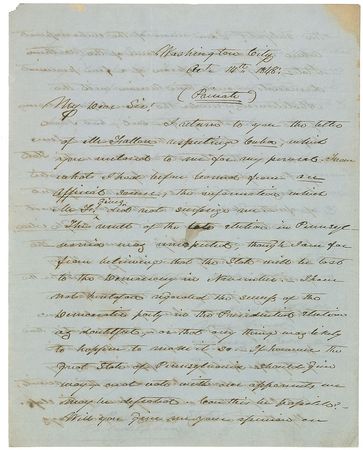 Washington City
Oct 14th 1848.
(Private)
My Dear Sir,
I return to you the letter
of Mr respecting Cuba which
you enclosed to me for my perusal. From
what I had before learned from an
official source, the information which
Mr gives did not surprise me.
The result of the late election in Pennsyl-
vania was unexpected, though I am far
from believing that the State will be lost
to the Democracy in November. I have
not heretofore regarded the success of the
Democratic party in the Presidential election
as doubtful, or that any thing was likely
to happen to make it so. If however the
great State of Pennsylvania should give
way & cast vote with our opponents we
may be defeated. Can this be possible?
Will you give me your opinion on